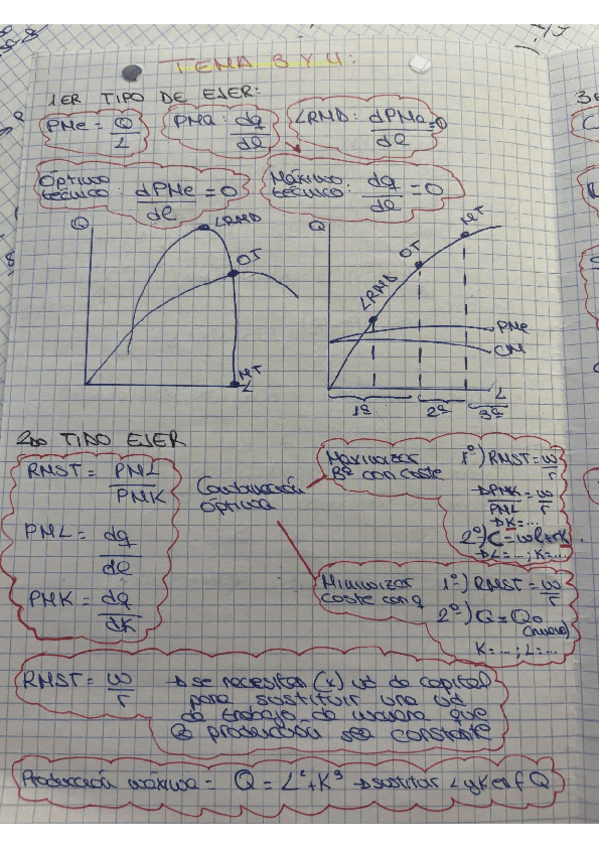 TEMA 3 Y 4:
1ER TIPO DE EJER:
PMe = Q/L
PMa: dq/dl
LRMD: dPMa/dl = 0
Óptimo técnico: dPMe/dl = 0
Máximo técnico: dq/dl = 0
Q
LRMD
OT
MT
L
Q
LRMD
OT
MT
PMe
CM
L
1ª 2ª 3ª
2DO TIPO EJER
RMST = PML/PMK
PML = dq/dl
PMK = dq/dK
Combinación
óptima
Maximizar
Bº con coste
1º) RMST = w/r
→ PMK/PML = w/r
→ K = ...
2º) C = wl + rK
→ L = ...; K = ...
Minimizar
coste con q
1º) RMST = w/r
2º) Q = Q0
(nuevo)
K = ...; L = ...
RMST = w/r
→ se necesitan (x) ud de capital
para sustituir una ud
de trabajo de manera que
la producción sea constante
Producción máxima = Q = L + K → sustituir L y K en f Q